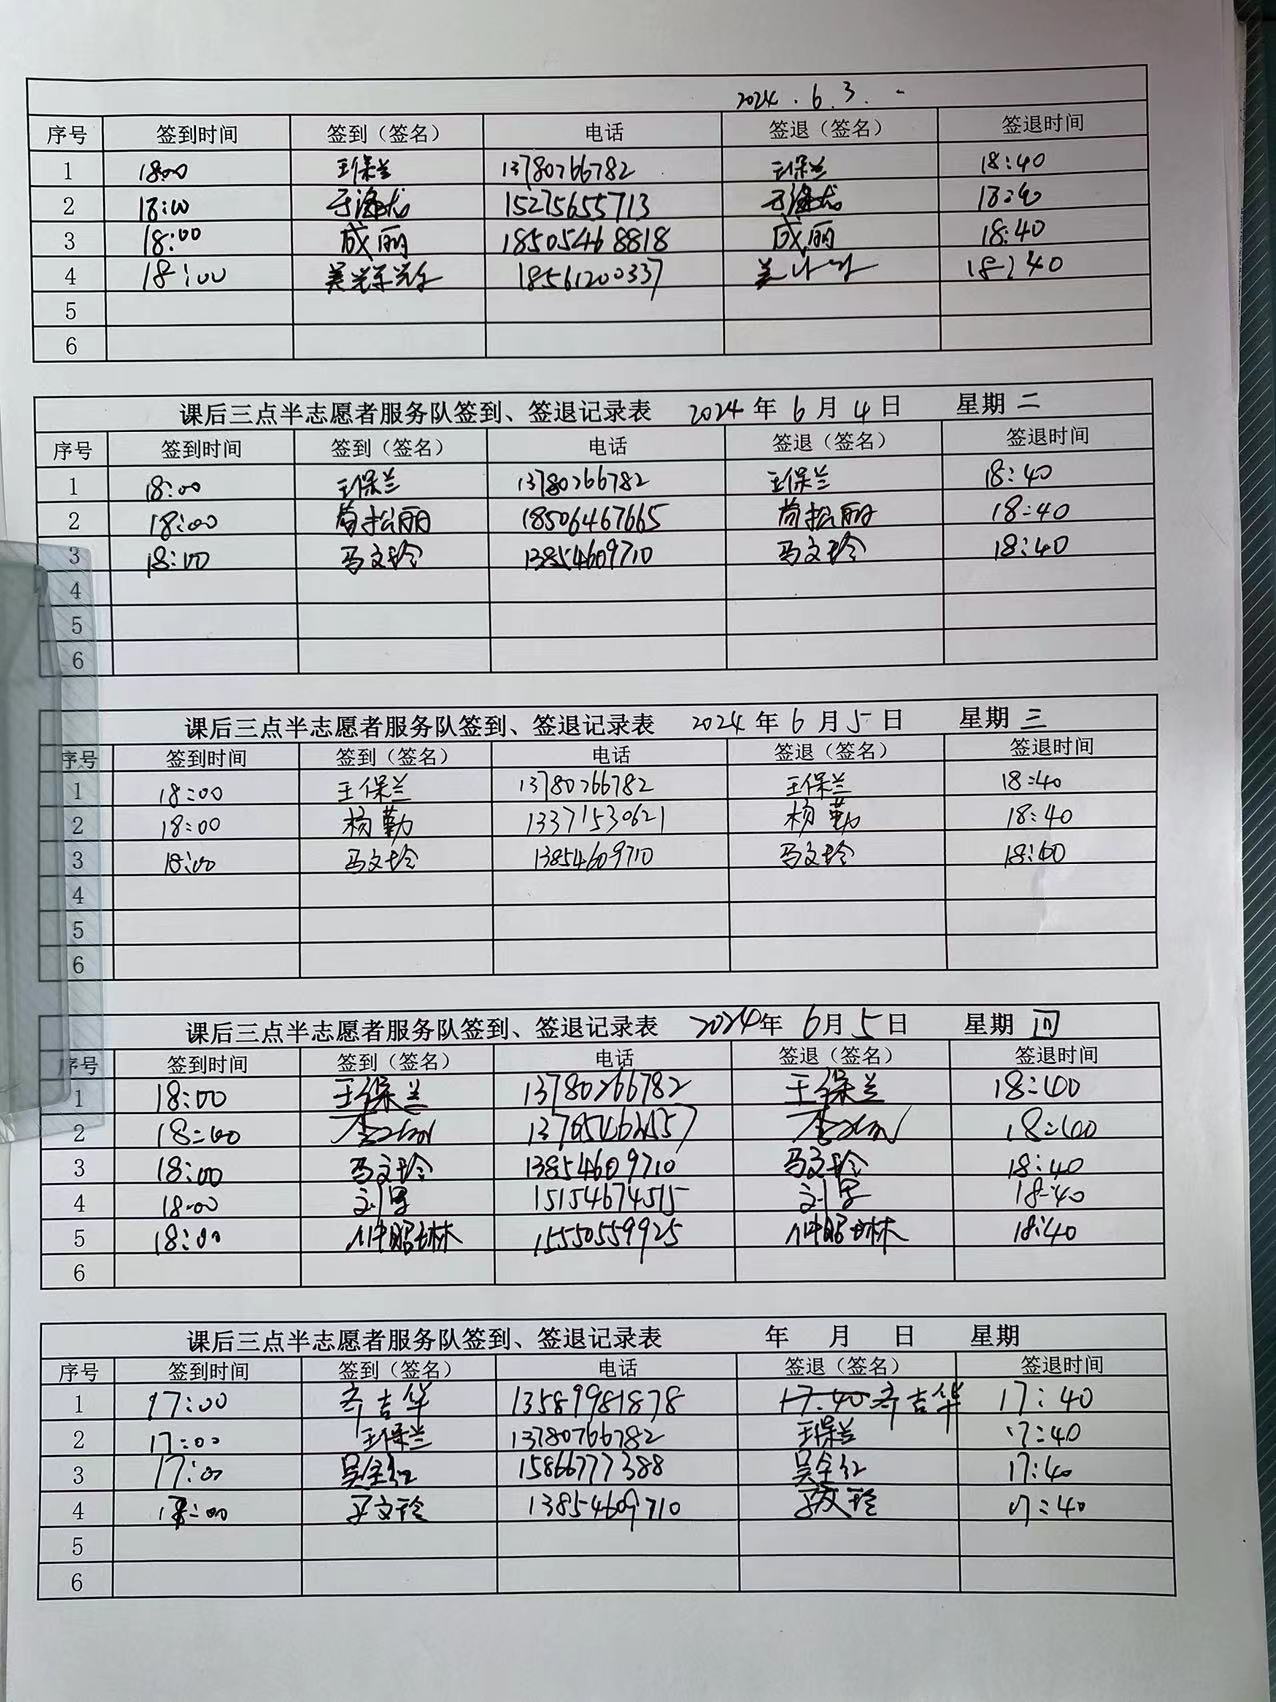 2024.6.3.
序号 签到时间 签到（签名） 电话 签退（签名） 签退时间
1 18:00 王保兰 13780766782 王保兰 18:40
2 18:00 15275655713 18:40
3 18:00 成丽 18505468818 成丽 18:40
4 18:00 18561200337 18:40
5
6
课后三点半志愿者服务队签到、签退记录表 2024年6月4日 星期二
序号 签到时间 签到（签名） 电话 签退（签名） 签退时间
1 18:00 王保兰 13780766782 王保兰 18:40
2 18:00 尚松丽 18506467665 尚松丽 18:40
3 18:00 马文玲 13854609710 马文玲 18:40
4
5
6
课后三点半志愿者服务队签到、签退记录表 2024年6月5日 星期三
序号 签到时间 签到（签名） 电话 签退（签名） 签退时间
1 18:00 王保兰 13780766782 王保兰 18:40
2 18:00 杨勤 13371530621 杨勤 18:40
3 18:00 马文玲 13854609710 马文玲 18:40
4
5
6
课后三点半志愿者服务队签到、签退记录表 2024年6月5日 星期四
序号 签到时间 签到（签名） 电话 签退（签名） 签退时间
1 18:00 王保兰 13780766782 王保兰 18:40
2 18:00 18:40
3 18:00 马文玲 13854609710 马文玲 18:40
4 18:00 15154674515 18:40
5 18:00 15550559925 18:40
6
课后三点半志愿者服务队签到、签退记录表 年 月 日 星期
序号 签到时间 签到（签名） 电话 签退（签名） 签退时间
1 17:00 齐吉华 13589981878 17:40 齐吉华 17:40
2 17:00 王保兰 13780766782 王保兰 17:40
3 17:00 吴全红 15866777388 吴全红 17:40
4 17:00 马文玲 13854609710 马文玲 17:40
5
6